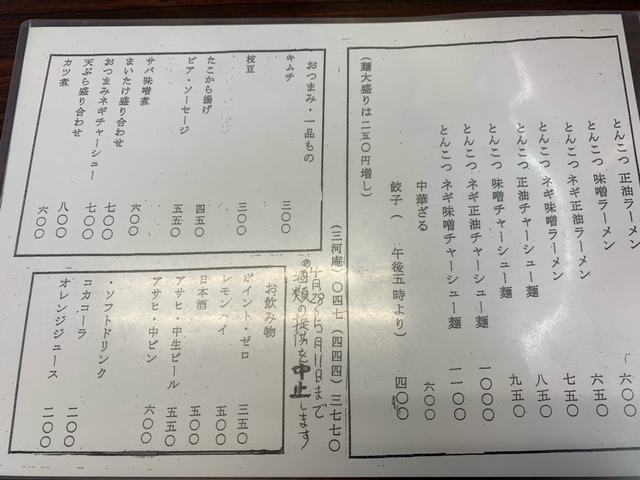 とんこつ 正油ラーメン 六〇〇
とんこつ 味噌ラーメン 六五〇
とんこつ ネギ正油ラーメン 七五〇
とんこつ ネギ味噌ラーメン 八五〇
とんこつ 正油チャーシュー麺 九五〇
とんこつ 味噌チャーシュー麺 一〇〇〇
とんこつ ネギ正油チャーシュー麺 一一〇〇
とんこつ ネギ味噌チャーシュー麺
中華ざる 六〇〇
餃子 ( 午後五時より) 四〇〇
(麺大盛りは二五〇円増し)
(三河庵) 〇四七 (四四四) 三七七〇
おつまみ・一品もの
キムチ 三〇〇
枝豆 三〇〇
たこから揚げ 四五〇
ビア・ソーセージ 五五〇
サバ味噌煮 六〇〇
まいたけ盛り合わせ
おつまみネギチャーシュー 七〇〇
天ぷら盛り合わせ 七〇〇
カツ煮 八〇〇
六〇〇
4月28〜5月11日まで
の酒類の提供を中止します
お飲み物
ポイント・ゼロ 三五〇
レモンハイ 五〇〇
日本酒 五〇〇
アサヒ・中生ビール 五五〇
アサヒ・中ビン 六〇〇
・ソフトドリンク
コカコーラ 二〇〇
オレンジジュース 二〇〇